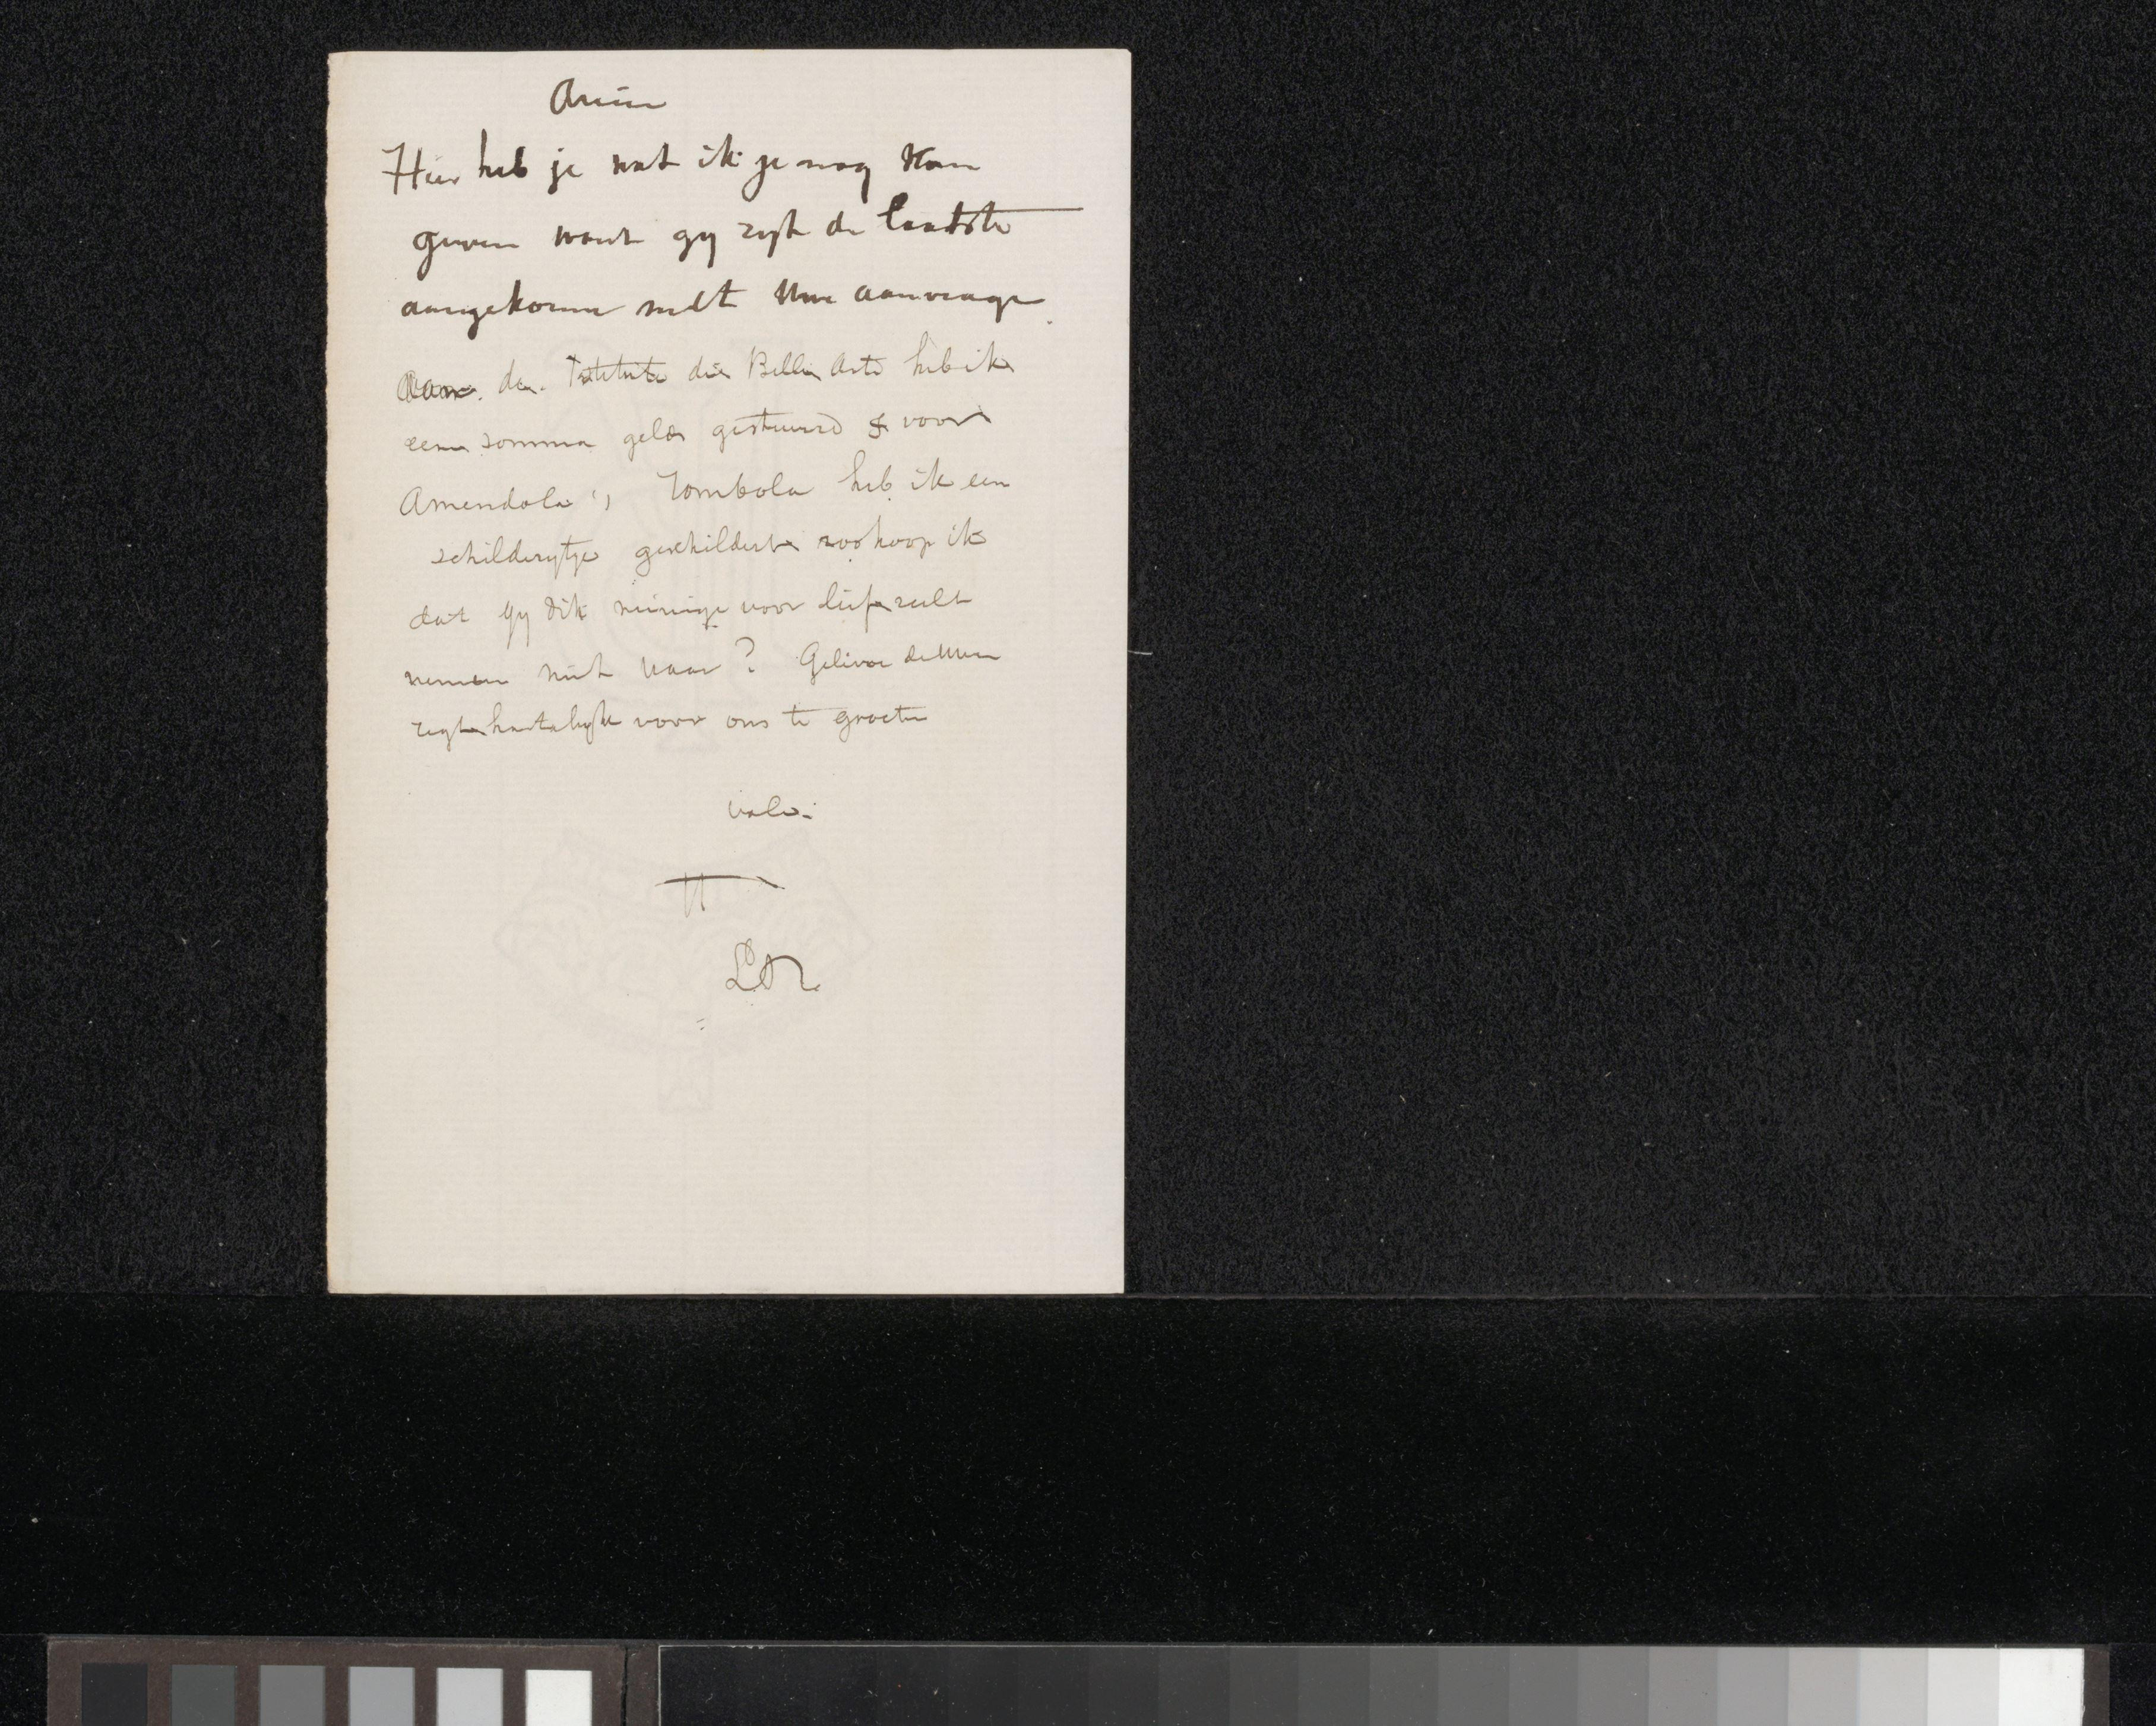 Amice
Hier heb je wat ik je nog kan
geven want gy zyt de laatste
aangekomen met Uwe aanvrage.
Aan de Istitute die Belle Arte heb ik
eene somma geld gestuurd & voor
Amendola's Tombola heb ik een
schilderytje geschildert zoo hoop ik
dat gy dit weinige voor lief zult
nemen niet waar? Gelieve de Uwen
regt hartelyk voor ons te groeten
Vale.
TT
LAT